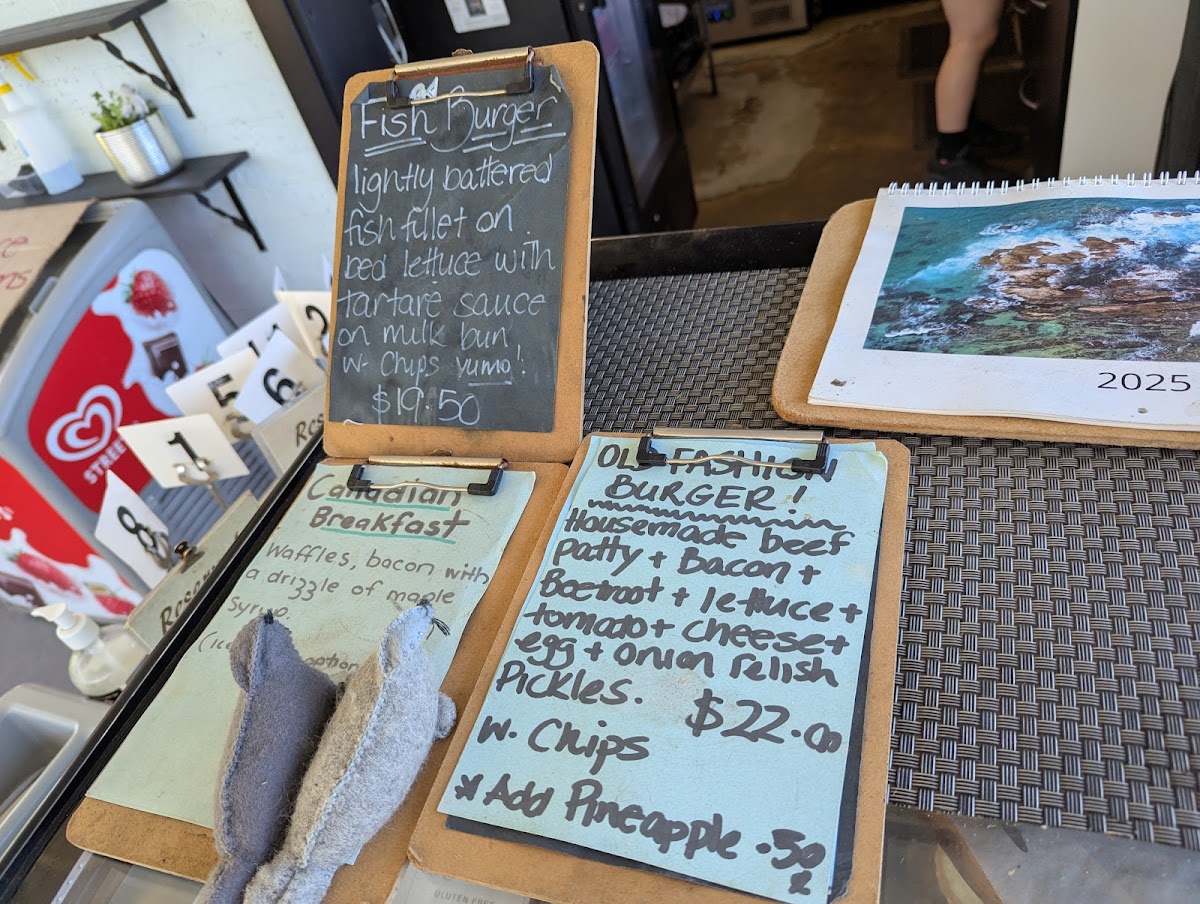 Fish Burger
lightly battered
fish fillet on
bed lettuce with
tartare sauce
on milk bun
w. Chips yumo!
$19.50
Canadian
Breakfast
Waffles, bacon with
a drizzle of maple
Syrup.
OLD FASHION
BURGER!
Housemade beef
patty + Bacon +
Beetroot + lettuce +
tomato + cheese +
egg + onion relish
Pickles. $22.00
w. Chips
* Add Pineapple .50
2025
STREETS
5
6
1
8
GLUTEN FREE